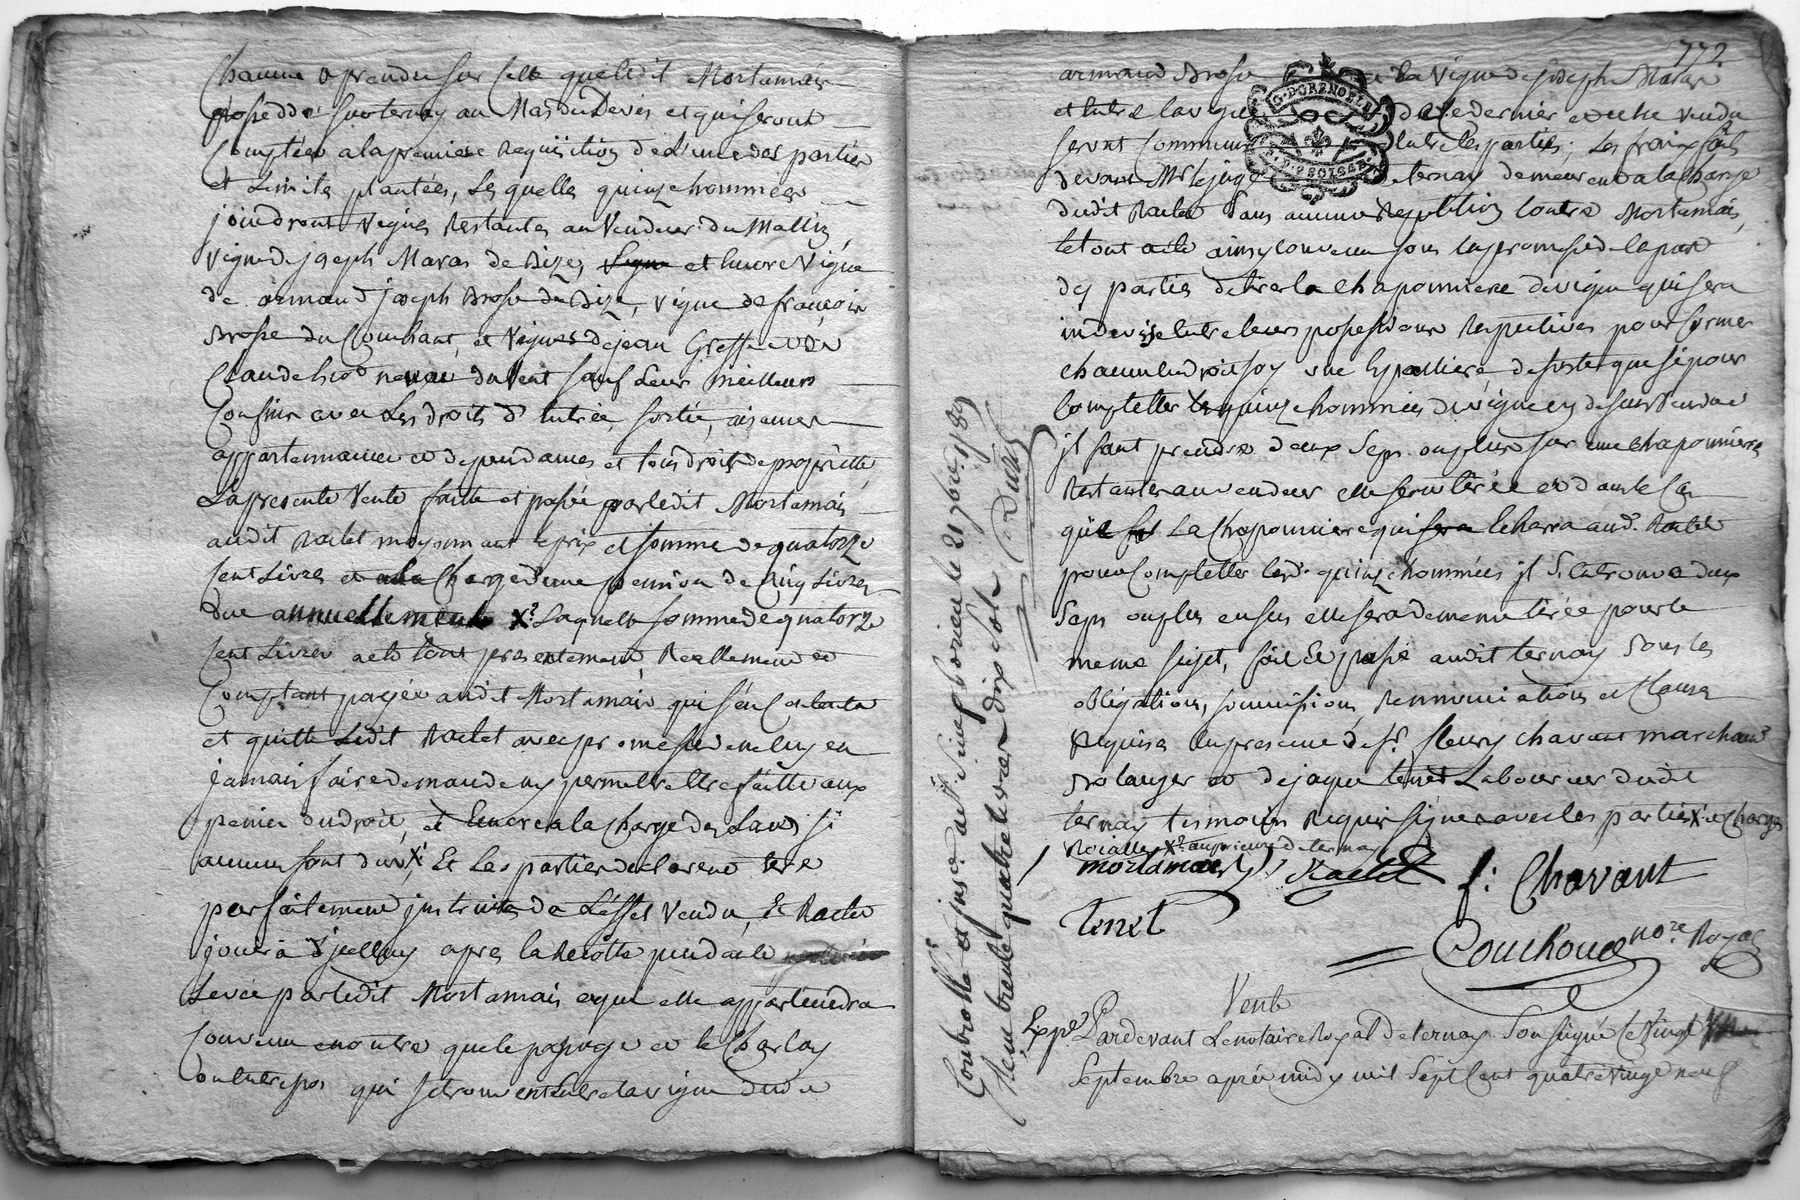 chacune a prendre sur celle que ledit Mortamais
possedde sur ternay au Mas du Devès et qui seront
comptées a la premiere Requisition de l'une des parties
et Limites plantées, Les quelles quinze hommées
joindront vignes Restantes au Vendeur du Mattin,
vigne de joseph Maras de Bize, Vigne et encore Vigne
de armand joseph Brosse de Bize, vigne de françois
Brosse du Couchant, et Vignes de jean et de
Claude du vent sauf Leurs meilleurs
Confins avec Les droits d'entrée, sortie, aisances
appartennances et dependances et tous droits de propriette
La presente Vente faitte et passée par ledit Mortamais
audit Raclet moyennant le prix et somme de quatorze
Cent Livres et a la Charge d'une pension de Cinq Livres
due annuellement X? Laquelle somme de quatorze
Cent Livres a eté tout presentement Reellement et
Comptant payée audit Mortamais qui s'en Contente
et quitte Ledit Raclet avec promesse de ne luy en
jamais faire demande ny permettre etre faitte aux
peines du droit, et encore a la Charge des Lauds si
aucuns sont dus X, Et Les parties declarent etre
parfaitement instruites de L'effet Vendu, Et Raclet
jouira d'jcelluy apres la Recotte pendante
Levée par ledit Mortamais a qui elle appartiendra
Convenu en outre que le passage et le Charlay
ou entrepos qui se trouve entre la vigne dudit
772
armand Brosse et la Vigne de joseph Maras
et entre la vigne de ce dernier et celle vendue
seront communs entre les parties. Les fraix faits
devant Mr le juge de ternay demeurent a la charge
dudit Raclet sans aucune Repetition contre Mortamais,
le tout a eté ainsy convenu sous la promesse de la part
des parties de tirer la chaponniere de vigne qui sera
indevise entre leurs possessions Respectives pour former
chacun endroit soy une Espalliere de sorte que si pour
completter les quinze hommées de vigne cy dessus Vendue
il faut prendre deux Seps ou plus sur une chaponniere
Restante au vendeur elle sera tirée et dans le Cas
que La Chaponniere qui sera echerra aud. Raclet
pour completter lesd. quinze hommées il s'en trouve deux
Seps ou plus en sus elle sera de meme tirée pour le
meme sujet, fait et passé audit ternay sous les
obligations, soumissions, Rennonciations et Clauses
Requises en presence de sr. fleury chavant marchand
Bolanger et de jaque tenet Laboureur dudit
ternay temoins Requis signés avec les parties X et charges
Roialles X? au prieuré de ternay
mortamais Raclet f: Chavant
tenet
Couchoud nore Royal
Controllé a jnsce. a St Simphorien le 21 7bre 1789
Vente
Exped. Pardevant Le notaire Royal de ternay Soussigné Ce Vingt
Septembre après midy mil Sept Cent quatre Vingt neuf
G. D GRENOBLE